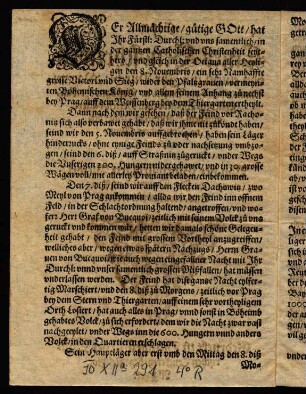 DEr Allmächtige / gütige GOtt / hat
Ihr Fürstl: Durchl: vnd vns samentlich / in
der gantzen Catholischen Christenheit
vnd gleich in der Octaua aller Heyli-
gen den 8. Nouembris / ein sehr Namhaffte
grosse Victori vnd Sieg / wider den Pfaltzgrauen / vermeynten
Böhmischen König / vnd allem seinem Anhang zunechst
bey Prag / auff dem Weissenberg bey dem Thiergarten ertheylt.
Dann nach dem wir gesehen / daß der Feind vor
nus sich also verbawet gehabt / daß wir jhme nit zukönd haben /
seind wir den 5. Nouembris auffgebrochen / haben sein Läger
hinderrucks / ohne eynige Feinds zu oder nachsetzung vmbzo-
gen / seind den 6. diß / auff Straßnitz gezuckt / vnder Wegs
die Vnserigen 200. Hungern nidergehawet / vnd in 30. grosse
Wägen voll / mit allerley Prouiant beladen / einbekommen.
Den 7. diß / seind wir auff den Flecken / zwo
Meyl von Prag ankommen / allda wir den Feind inn offnem
Feld / in der Schlachtordnung haltend / angetroffen / vnd wo-
fern Herr Graf von Bucquoj / zeitlich mit seinem Volck zu vns
geruckt vnd kommen wär / hetten wir damals schöne Gelegen-
heit gehabt / den Feind mit grossem Vortheyl anzugreiffen /
weil es aber / wegen etwas spätten Nachzugs / Herrn Gra-
uen von Bucquoi / wie auch wegen eingefallner Nacht mit Ihr
Durchl: vnnd vnser samentlich grossen Mißfallen / hat müssen
vnderlassen werden. Der Feind hat dise gantze Nacht eylfer-
tig Marschiert / vnd den 8. diß zu Morgens / zeitlich vor Prag
bey dem Stern vnd Thiergarten / auff einem sehr vortheyligen
Orth Losiert / hat auch alles in Prag / vnnd sonst in Böheimb
gehabtes Volck / zu sich erfordert / dem wir die Nacht zwar vast
nachgeeylet / vnder Wegs inn die 600. Hungern vnnd anders
Volck / in den Quartieren erschlagen.
Sein Hauptläger aber erst vmb den Mittag den 8. diß
Mo-
XII 291 4° R